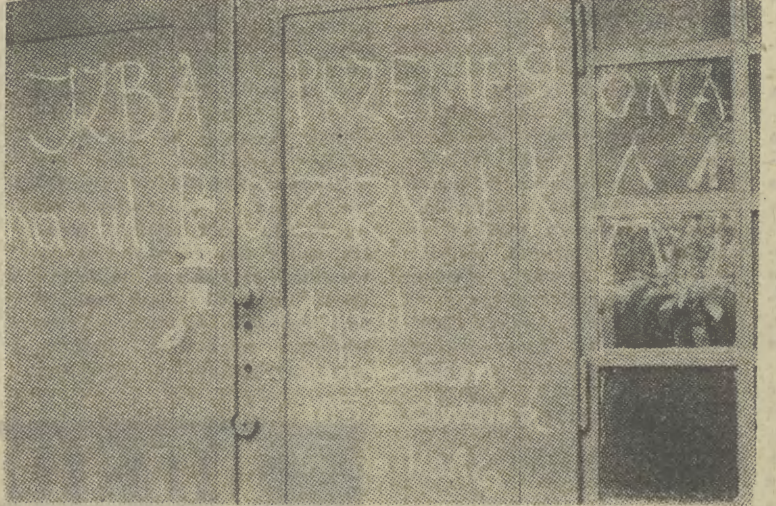 IZBA PRZENIESIONA
na ul. ROZRYWKA 1
Dojazd
autobusem
z dworca